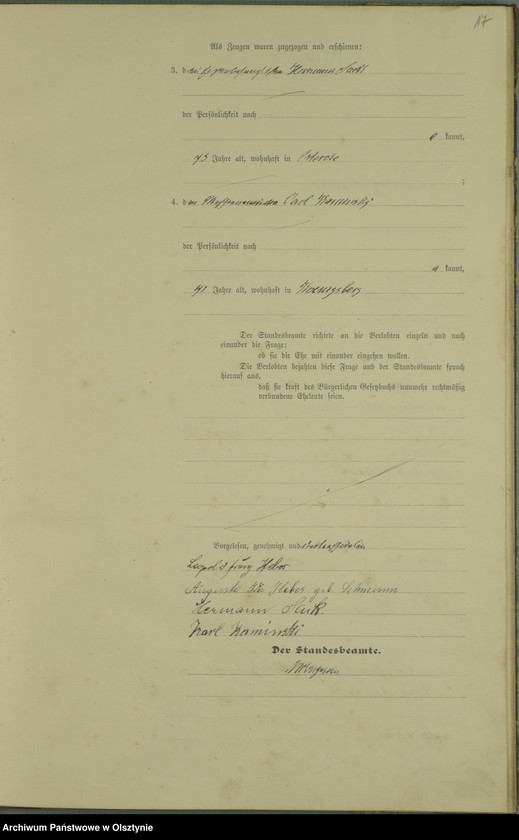 17
Als Zeugen waren zugezogen und erschienen:
3. d Hermann
der Persönlichkeit nach
kannt,
43 Jahre alt, wohnhaft in Osterode
;
4. d Carl Kaminski
der Persönlichkeit nach
kannt,
41 Jahre alt, wohnhaft in Koenigsberg
Der Standesbeamte richtete an die Verlobten einzeln und nach
einander die Frage:
ob sie die Ehe mit einander eingehen wollen.
Die Verlobten bejahten diese Frage und der Standesbeamte sprach
hierauf aus,
daß sie kraft des Bürgerlichen Gesetzbuchs nunmehr rechtmäßig
verbundene Eheleute seien.
Vorgelesen, genehmigt und unterschrieben
Leopold
Auguste geb.
Hermann
Karl Kaminski
Der Standesbeamte.
Archiwum Państwowe w Olsztynie